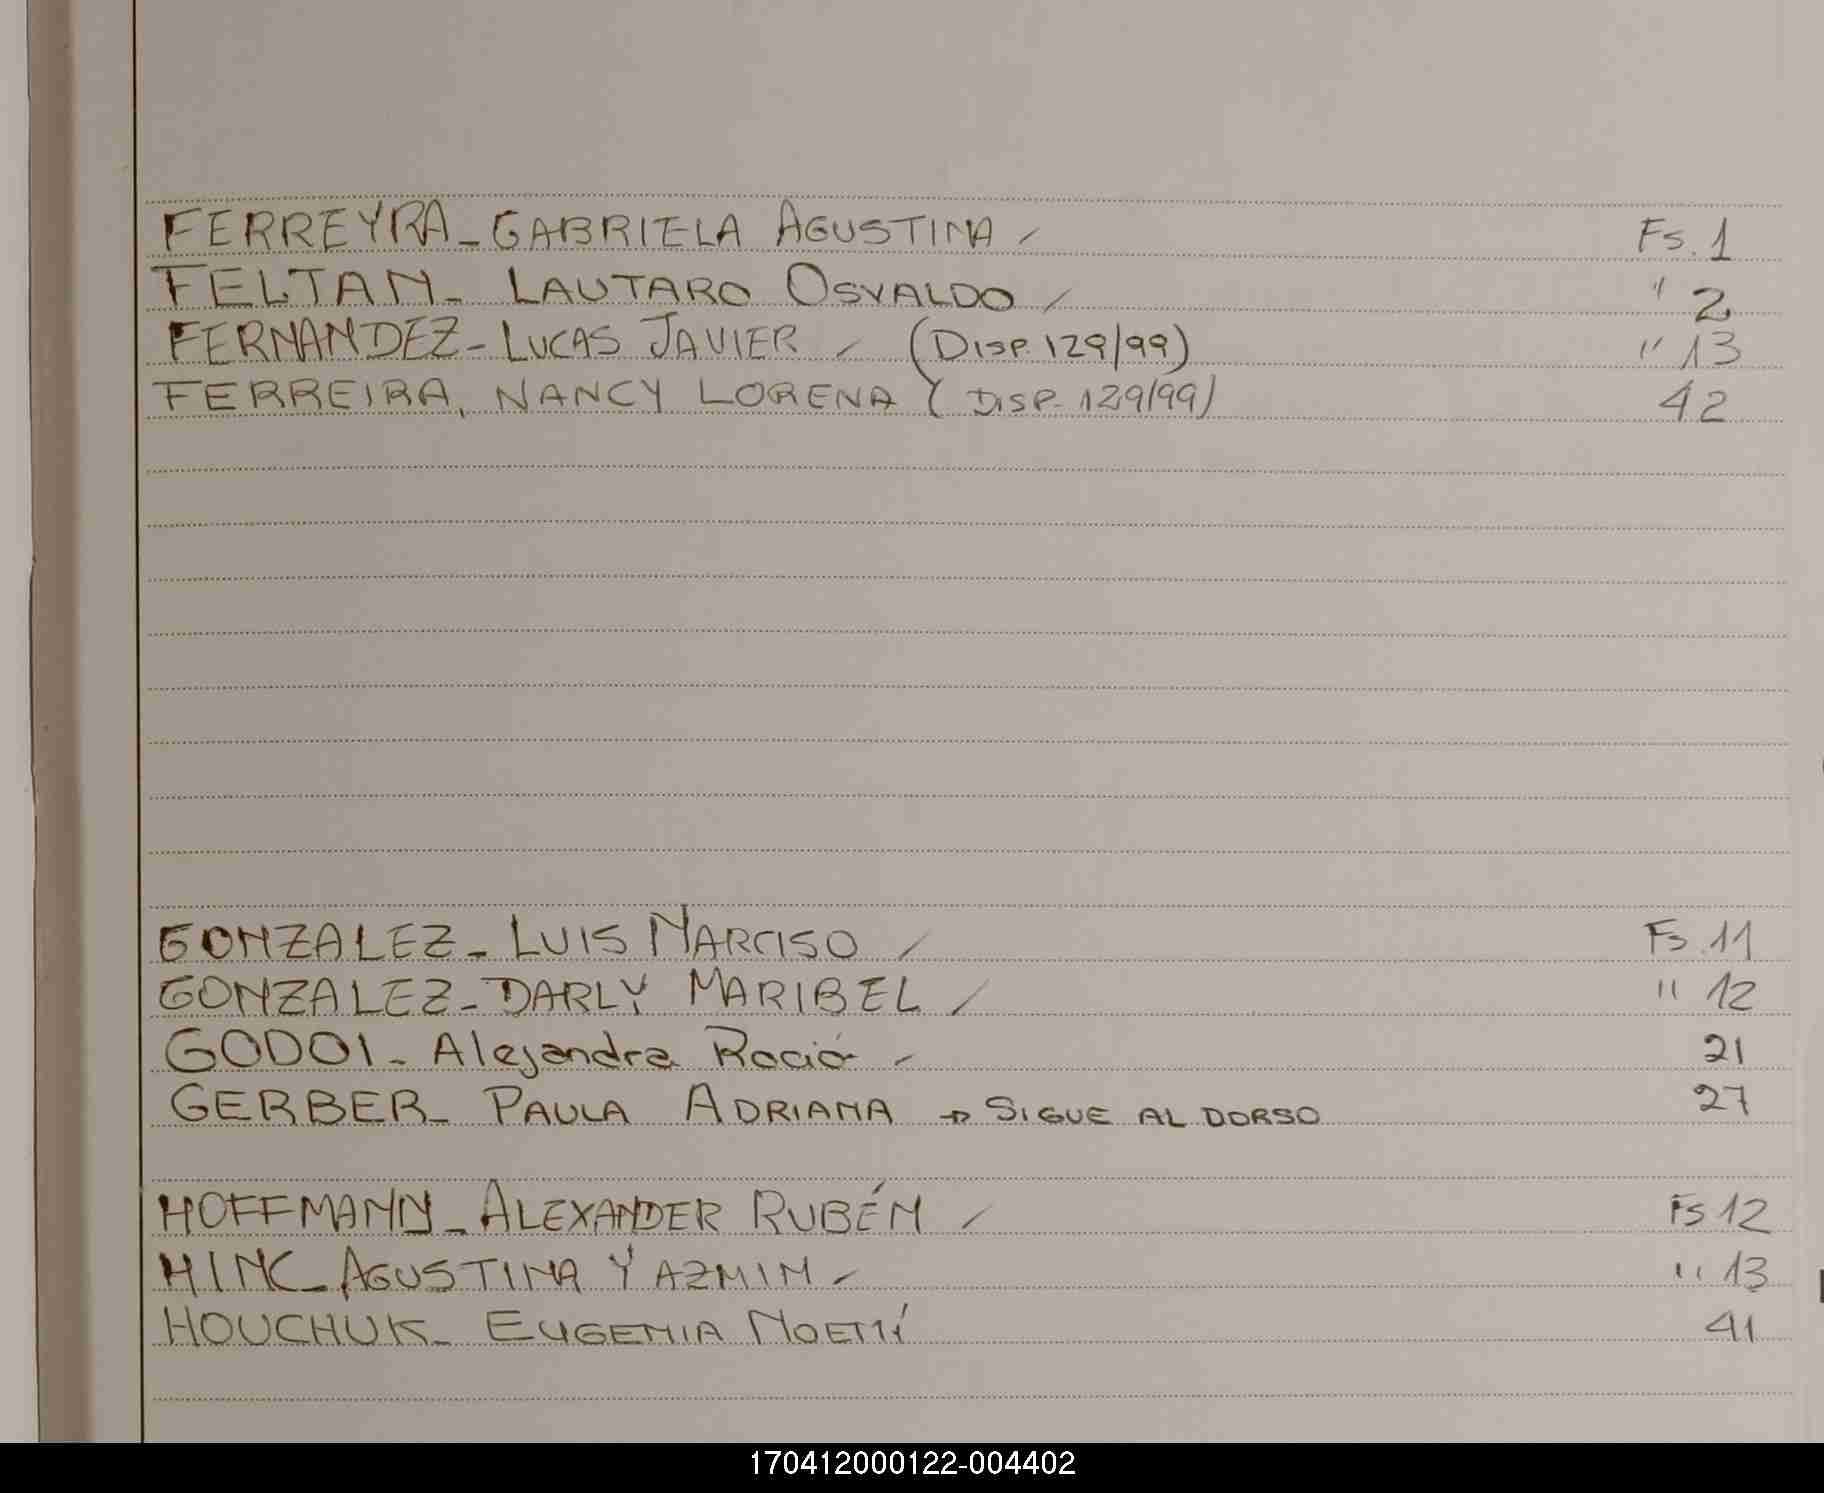 FERREYRA - GABRIELA AGUSTINA / Fs. 1
FELTAN - LAUTARO OSVALDO / " 2
FERNANDEZ - LUCAS JAVIER / (DISP. 129/99) " 13
FERREIRA, NANCY LORENA (DISP. 129/99) 42
GONZALEZ - LUIS NARCISO / Fs. 11
GONZALEZ - DARLY MARIBEL / " 12
GODOI - Alejandra Roció - 21
GERBER - PAULA ADRIANA → SIGUE AL DORSO 27
HOFFMANN - ALEXANDER RUBÉN / Fs 12
HINC - AGUSTINA YAZMIN - " 13
HOUCHUK - EUGENIA NOEMÍ 41
170412000122-004402